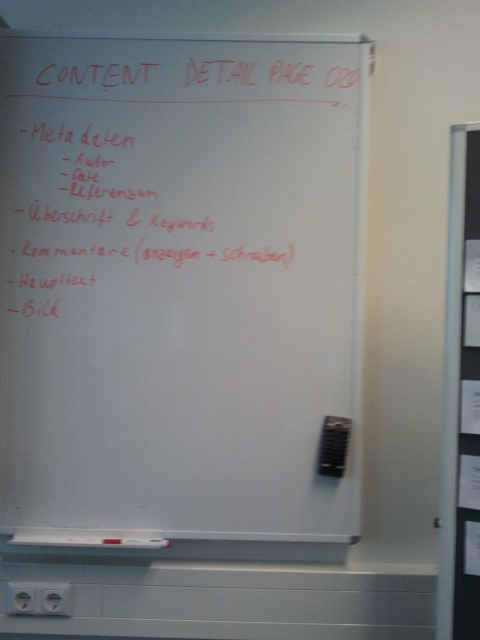 CONTENT DETAIL PAGE
- Metadaten
- Autor
- Date
- Referenzen
- Überschrift & Keywords
- Kommentare (anzeigen + schreiben)
- Haupttext
- Bild